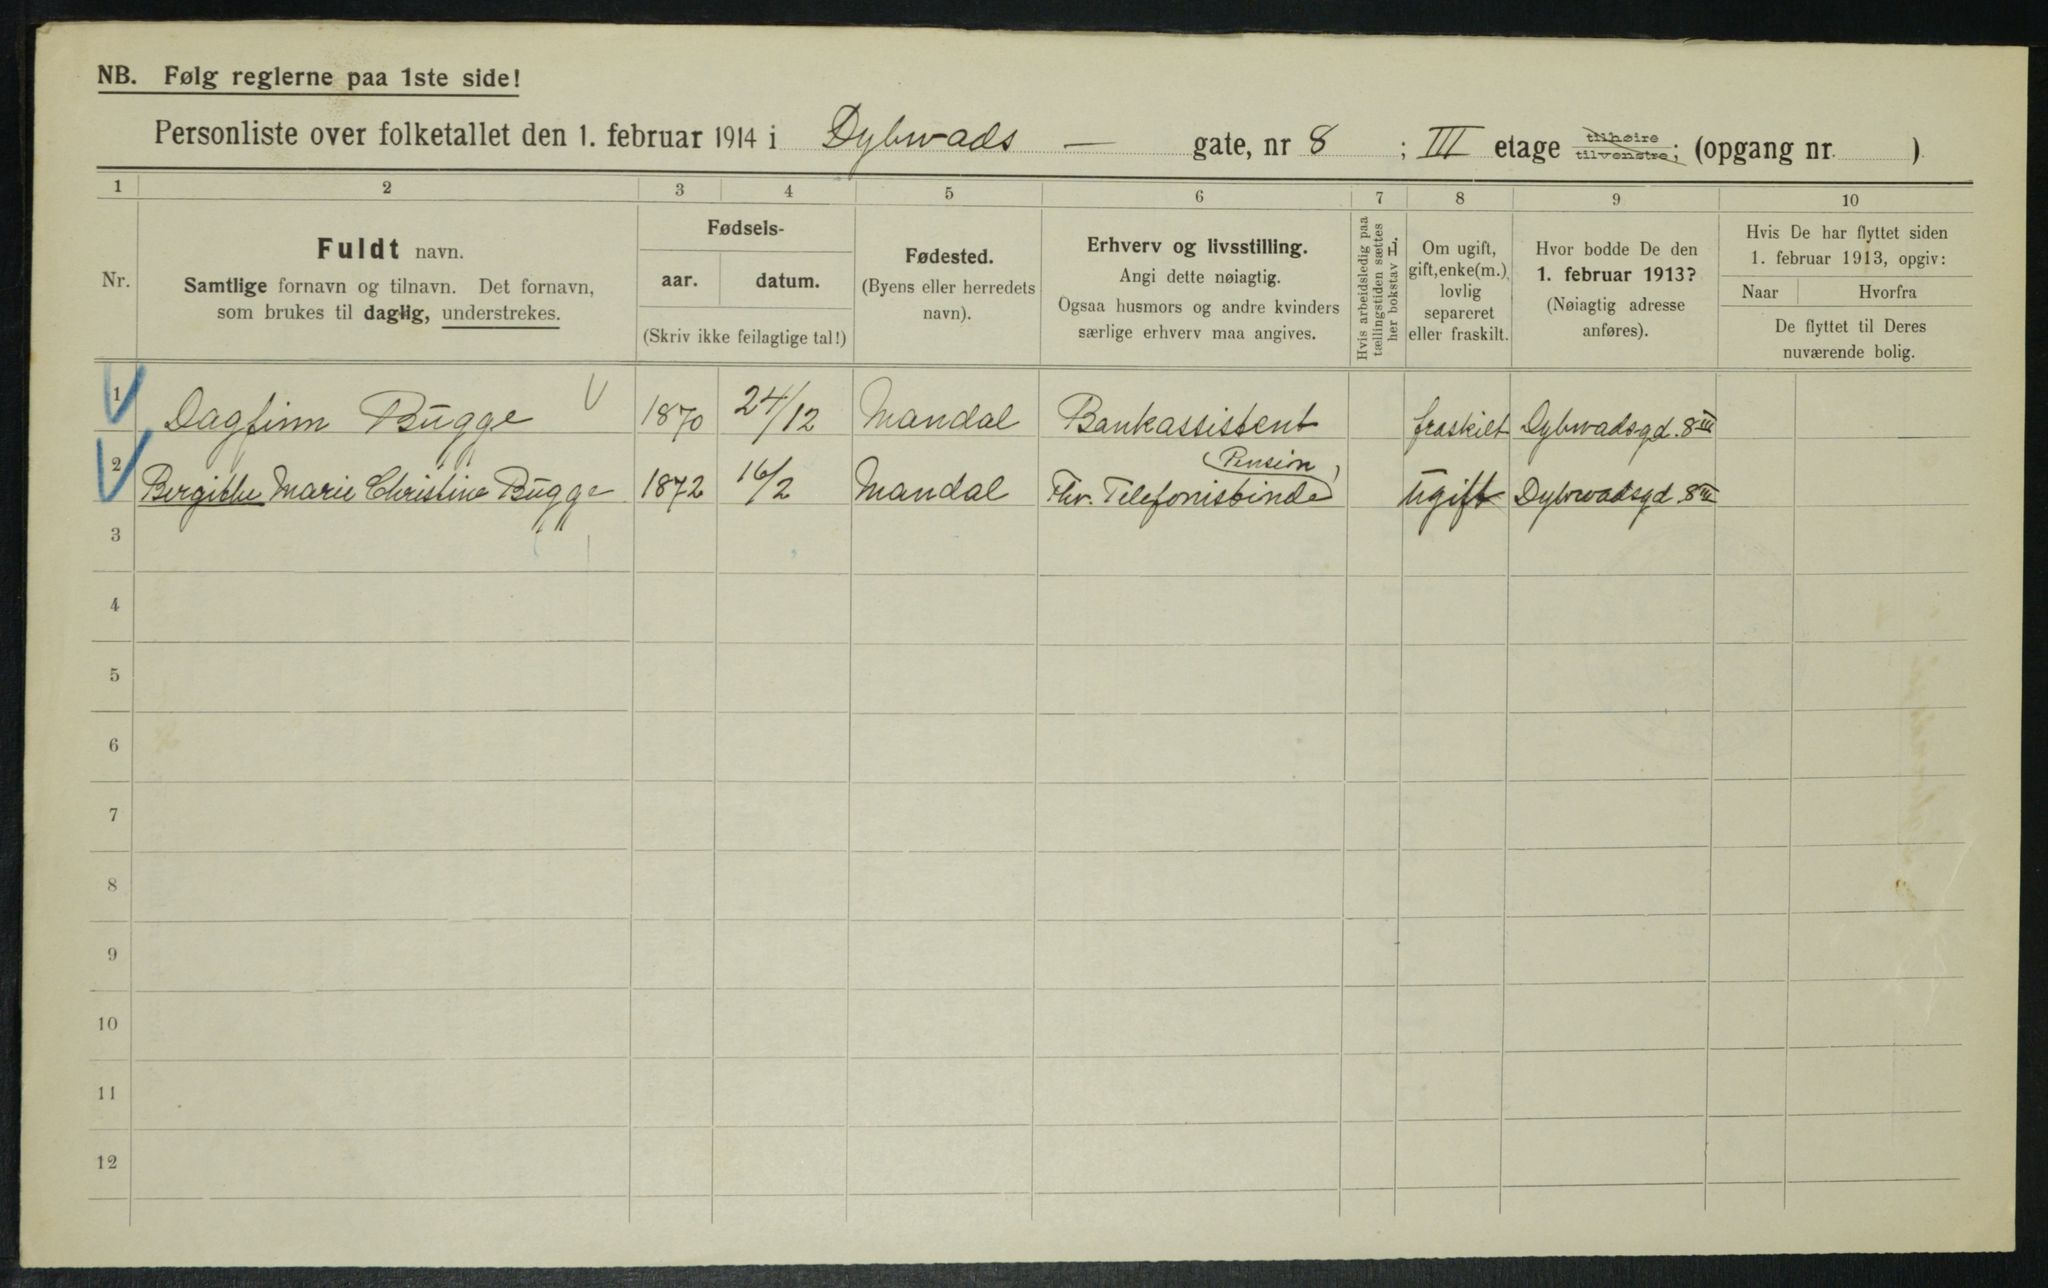 NB. Følg reglerne paa 1ste side!
Personliste over folketallet den 1. februar 1914 i Dybwads — gate, nr 8 ; III etage tilhøire tilvenstre; (opgang nr. )
1 2 3 4 5 6 7 8 9 10
Nr.
Fuldt navn.
Samtlige fornavn og tilnavn. Det fornavn,
som brukes til daglig, understrekes.
Fødsels-
aar. datum.
(Skriv ikke feilagtige tal!)
Fødested.
(Byens eller herredets
navn).
Erhverv og livsstilling.
Angi dette nøiagtig.
Ogsaa husmors og andre kvinders
særlige erhverv maa angives.
Hvis arbeidsledig paa
tællingstiden sættes
her bokstav H.
Om ugift,
gift, enke(m.),
lovlig
separeret
eller fraskilt.
Hvor bodde De den
1. februar 1913?
(Nøiagtig adresse
anføres).
Hvis De har flyttet siden
1. februar 1913, opgiv:
Naar Hvorfra
De flyttet til Deres
nuværende bolig.
1 Dagfinn Bugge 1870 24/12 Mandal Bankassistent fraskilt Dybwadsgd. 8 III
2 Bergithe Marie Christine Bugge 1872 16/2 Mandal Fhv. Telefonistinde (Pension) Ugift Dybwadsgd. 8 III
3
4
5
6
7
8
9
10
11
12